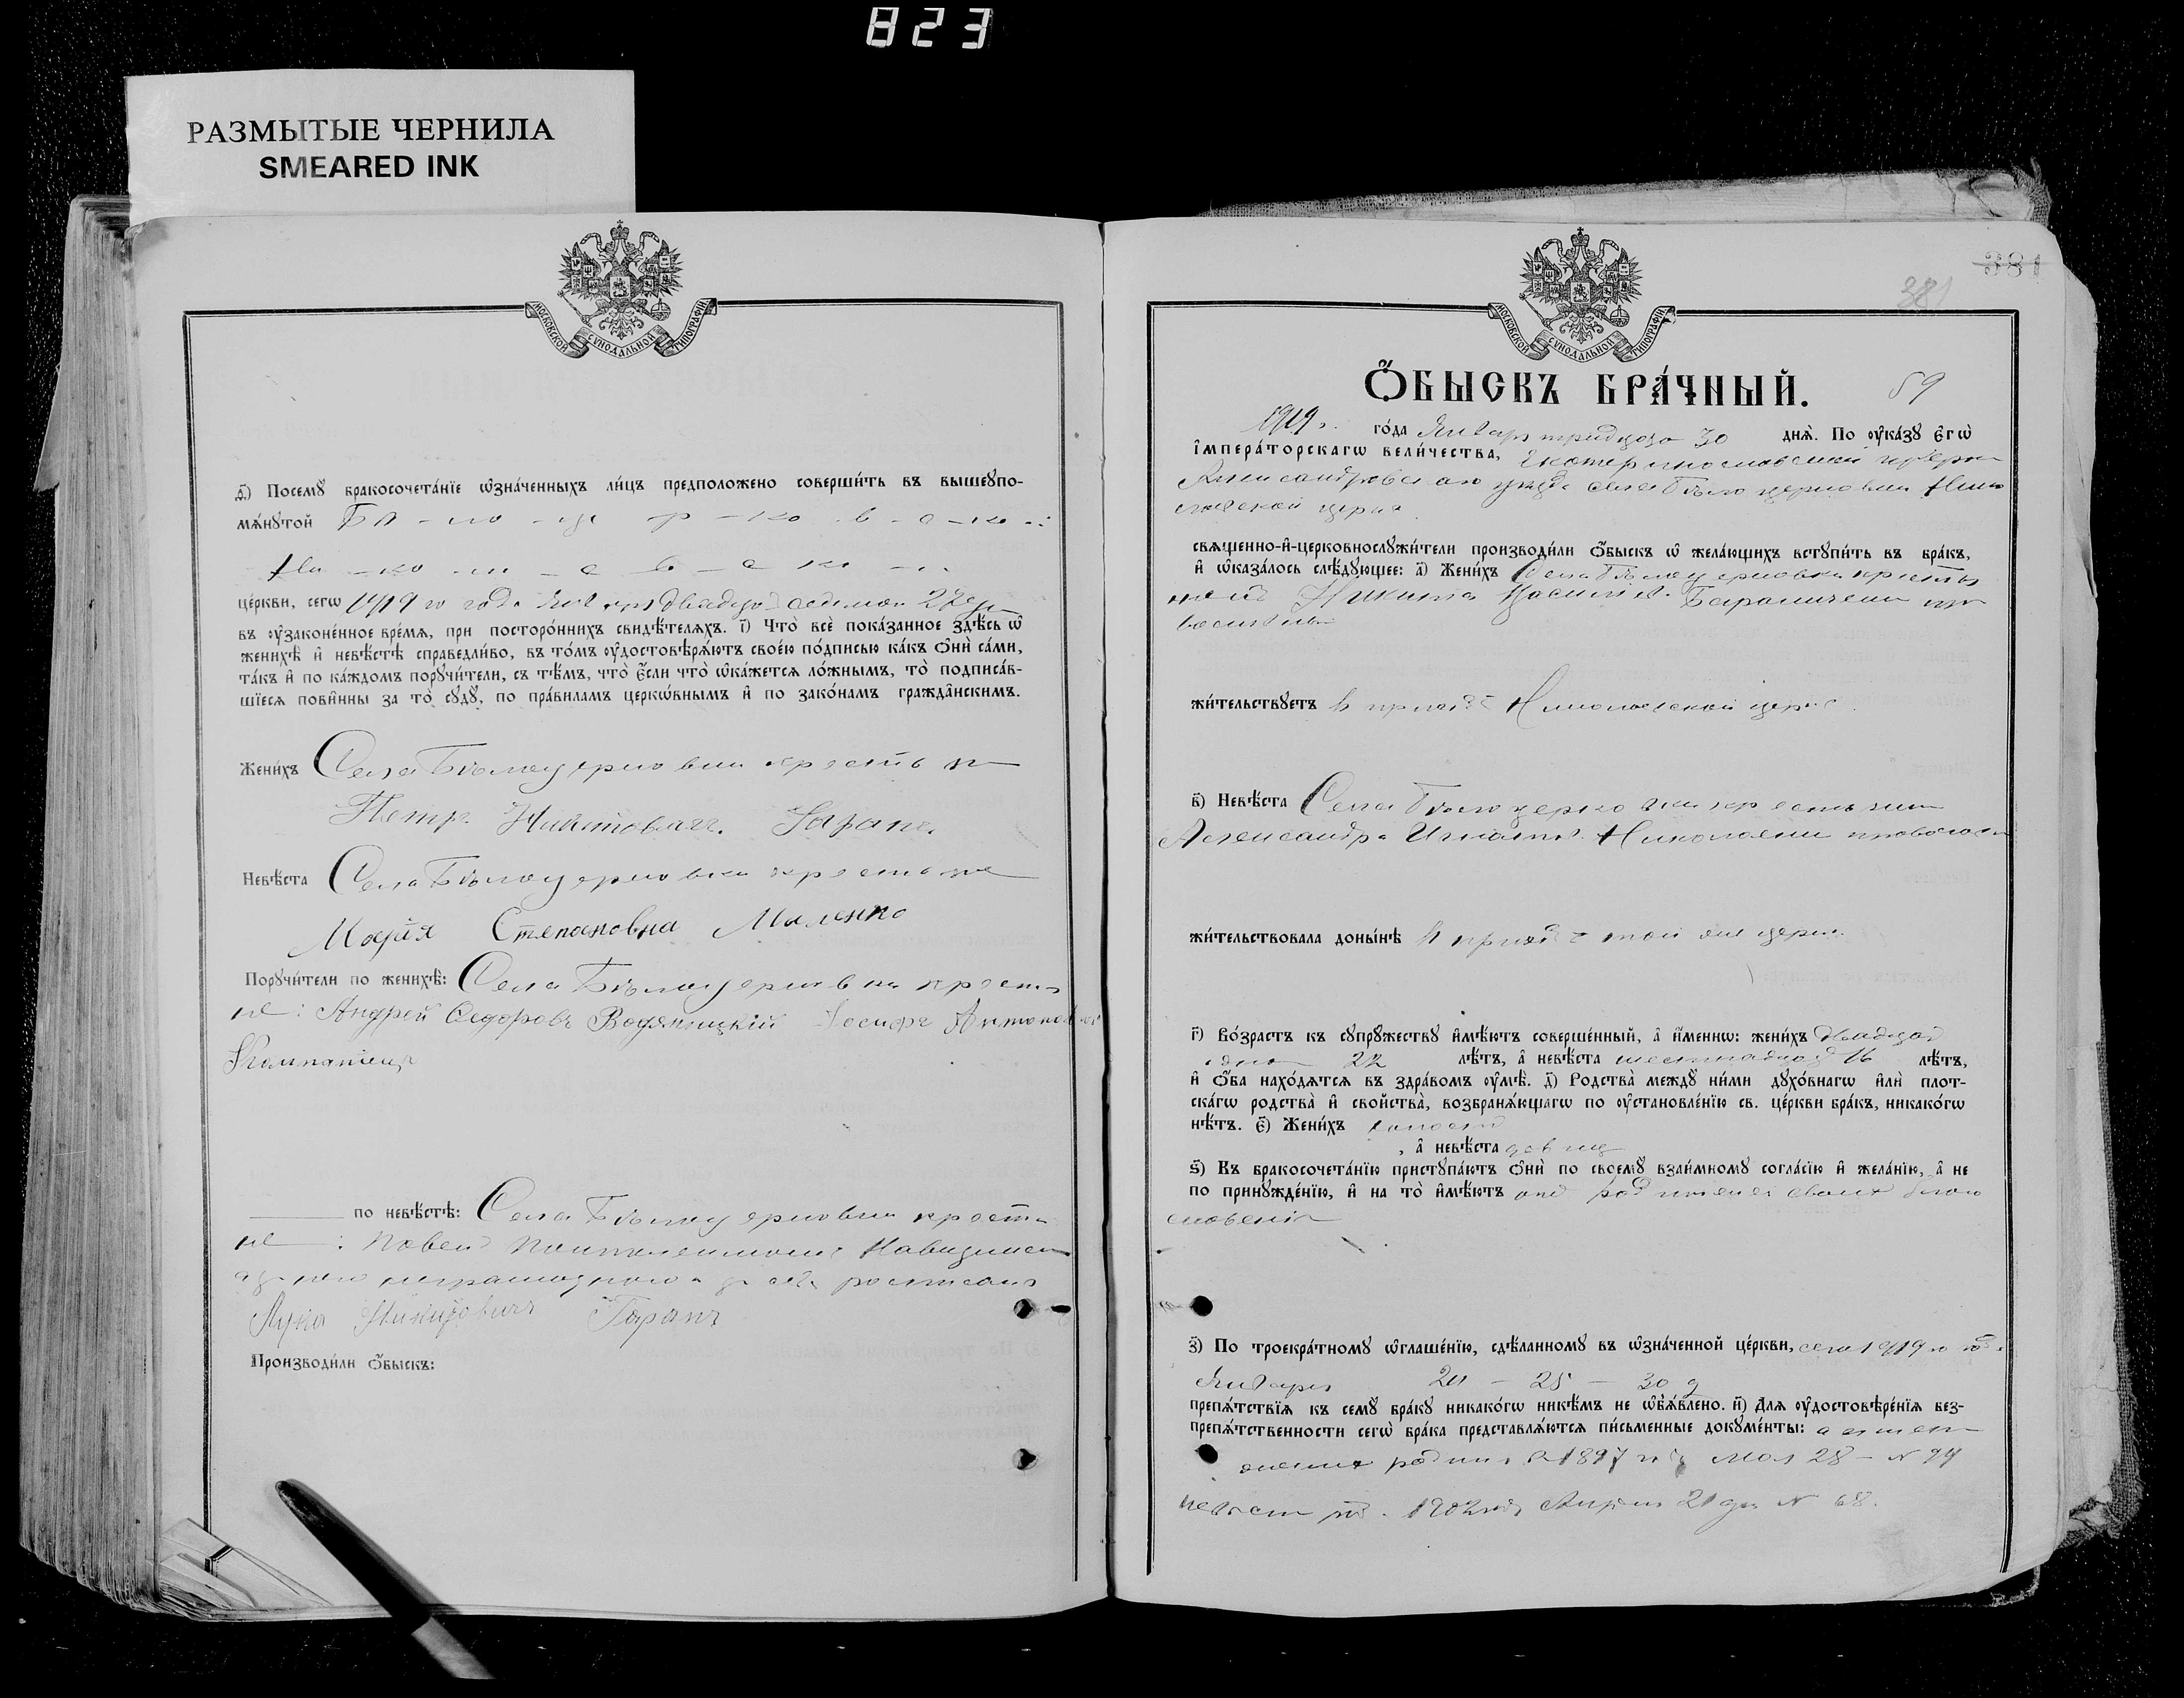 823
РАЗМЫТЫЕ ЧЕРНИЛА
SMEARED INK
МОСКОВСКОЙ СУНОДАЛЬНОЙ ТИПОГРАФІИ
д҃) Посемꙋ бракосочета́нїе ѡ҆зна́ченныхъ ли́цъ предположено соверши́ть въ вышеꙋпо-
мѧ́нꙋтой Бѣ - ло - це - р - ко - в - с - ко - й
Ни - ко - л - а - в - с - ко - й
це́ркви, сегѡ 1919 го года Января двадцать седьмого 27 дня
въ ᲂу҆законе́нное вре́мѧ, при посторо́ннихъ свидѣ́телѧхъ. і҃) Что̀ всѐ показа́нное здѣ́сь ѡ҆
женихѣ̀ и҆ невѣ́стѣ справедли́во, въ то́мъ ᲂу҆достовѣрѧ́ютъ свое́ю по́дписью ка́къ ѻ҆нѝ са́ми,
та́къ и҆ по ка́ждомъ порꙋчи́тели, съ тѣ́мъ, что̀ є҆́сли что̀ ѡ҆ка́жетсѧ ло́жнымъ, то̀ подписа́в-
шїесѧ пови́нны за то̀ сꙋдꙋ̀, по пра́виламъ церкѡ́внымъ и҆ по зако́намъ гражда́нскимъ.
Жени́хъ Села Бѣлоцерковки крестьян
Петр Никитович Гаран
Невѣ́ста Села Бѣлоцерковки крестьяне
Марія Степановна Маленко
Порꙋчи́тели по женихѣ̀: Села Бѣлоцерковки крестья
не: Андрей Седоровъ Водяницкій Іосифъ Антонович
Компаніец
по невѣ́стѣ: Села Бѣлоцерковки крестья
не: Павел Пантелеймонов
неграмотного
Лука Никитовичъ Гаранъ
Производи́ли ѻ҆́быскъ:
МОСКОВСКОЙ СУНОДАЛЬНОЙ ТИПОГРАФІИ
381
381
Ѻ҆́БЫСКЪ БРА́ЧНЫЙ. 59
1919 г. го́да Января тридцать 30 днѧ̀. По ᲂу҆ка́зꙋ є҆гѡ̀
і҆мпера́торскагѡ вели́чества, Екатеринославской губерни
Александровского уезда села Бѣлоцерковки Нико
лаевской церкв
свѧще́нно-и҆-церковнослꙋжи́тели производи́ли ѻ҆́быскъ ѡ҆ жела́ющихъ встꙋпи́ть въ бра́къ,
и҆ ѡ҆каза́лось слѣ́дꙋющее: а҃) Жени́хъ Села Бѣлоцерковки крестья
нин Никита Васильев. пра
вославн
жи́тельствꙋетъ в приходѣ Николаевской церкв
в҃) Невѣ́ста Села Бѣлоцерковки крестьянин
Александра Игнатов. Николаенк православн
жи́тельствовала доны́нѣ в приходе той же церкви
г҃) Во́зрастъ къ сꙋпрꙋ́жествꙋ и҆мѣ́ютъ соверше́нный, а҆ и҆́меннѡ: жени́хъ двадцать
22 лѣ́тъ, а҆ невѣ́ста шестнадцать 16 лѣ́тъ,
и҆ ѻ҆́ба нахо́дѧтсѧ въ здра́вомъ ᲂу҆мѣ̀. д҃) Родства̀ междꙋ̀ ни́ми дꙋхо́внагѡ и҆лѝ плот-
ска́гѡ родства̀ и҆ свойства̀, возбранѧ́ющагѡ по ᲂу҆становле́нїю св. це́ркви бра́къ, никако́гѡ
нѣ́тъ. є҃) Жени́хъ холост
, а҆ невѣ́ста девица
ѕ҃) Къ бракосочета́нїю пристꙋпа́ютъ ѻ҆нѝ по своемꙋ̀ взаи́мномꙋ согла́сїю и҆ жела́нїю, а҆ не
по принꙋжде́нїю, и҆ на то̀ и҆мѣ́ютъ от родителей своих благо
словенія
з҃) По троекра́тномꙋ ѡ҆глаше́нїю, сдѣ́ланномꙋ въ ѡ҆зна́ченной це́ркви, сего 1919 го год
Января 20 - 25 - 30 д
препѧ́тствїѧ къ семꙋ̀ бра́кꙋ никако́гѡ никѣ́мъ не ѡ҆б̾ѧ́влено. и҃) Длѧ ᲂу҆достовѣре́нїѧ без-
препѧ́тственности сегѡ̀ бра́ка представлѧ́ютсѧ пи́сьменные докꙋме́нты:
жених родил. 1897 год Мая 28 - № 94
невѣста род. 1902 год Апреля 21 дня № 68.